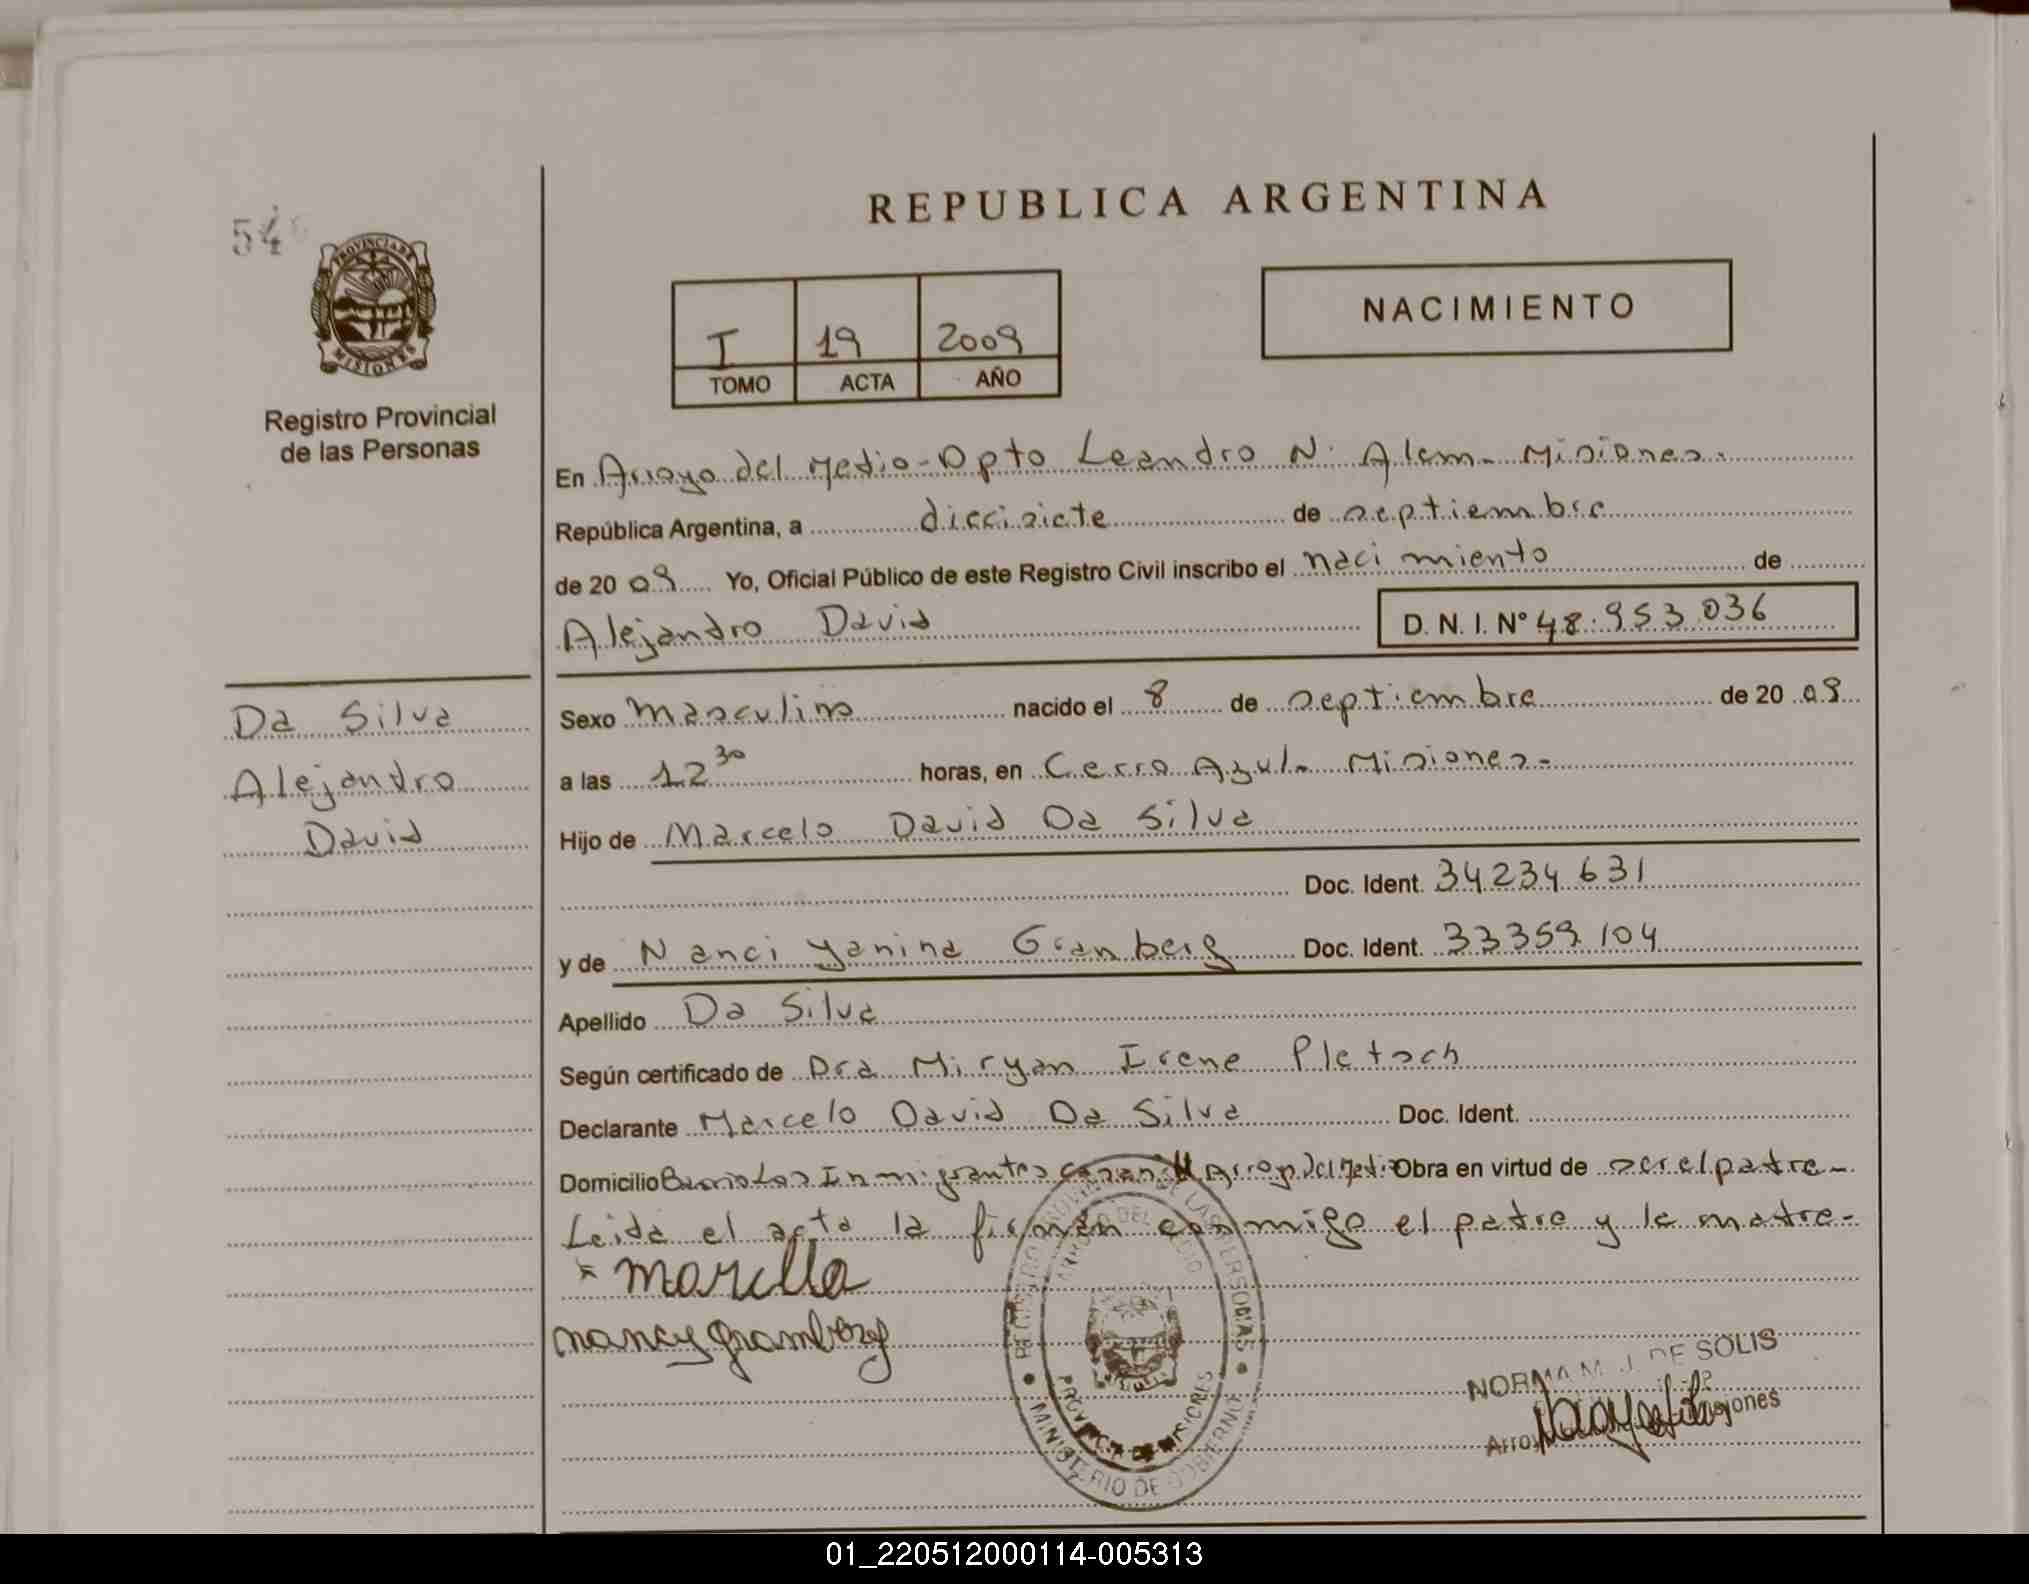 REPUBLICA ARGENTINA
54
PROVINCIA DE
MISIONES
Registro Provincial
de las Personas
I 19 2009
TOMO ACTA AÑO
NACIMIENTO
En Arroyo del Medio - Dpto Leandro N. Alem - Misiones.
República Argentina, a diecisiete de septiembre
de 20 09 Yo, Oficial Público de este Registro Civil inscribo el nacimiento de
Alejandro David D. N. I. Nº 48.953.036
Da Silva
Alejandro
David
Sexo masculino nacido el 8 de septiembre de 20 09
a las 12 30 horas, en Cerro Azul - Misiones -
Hijo de Marcelo David Da Silva
Doc. Ident. 34234631
y de Nanci Yanina Gramberg Doc. Ident. 33359104
Apellido Da Silva
Según certificado de Dra Miryan Irene Pletsch
Declarante Marcelo David Da Silva Doc. Ident.
Domicilio Barrio Los Inmigrantes Arroyo Del Medio Obra en virtud de ser el padre -
Leida el acta la firman conmigo el padre y la madre -
REGISTRO PROVINCIAL DE LAS PERSONAS
ARROYO DEL MEDIO
PROVINCIA DE MISIONES
MINISTERIO DE GOBIERNO
nancy gramberg
NORMA M. J. DE SOLIS
01_220512000114-005313